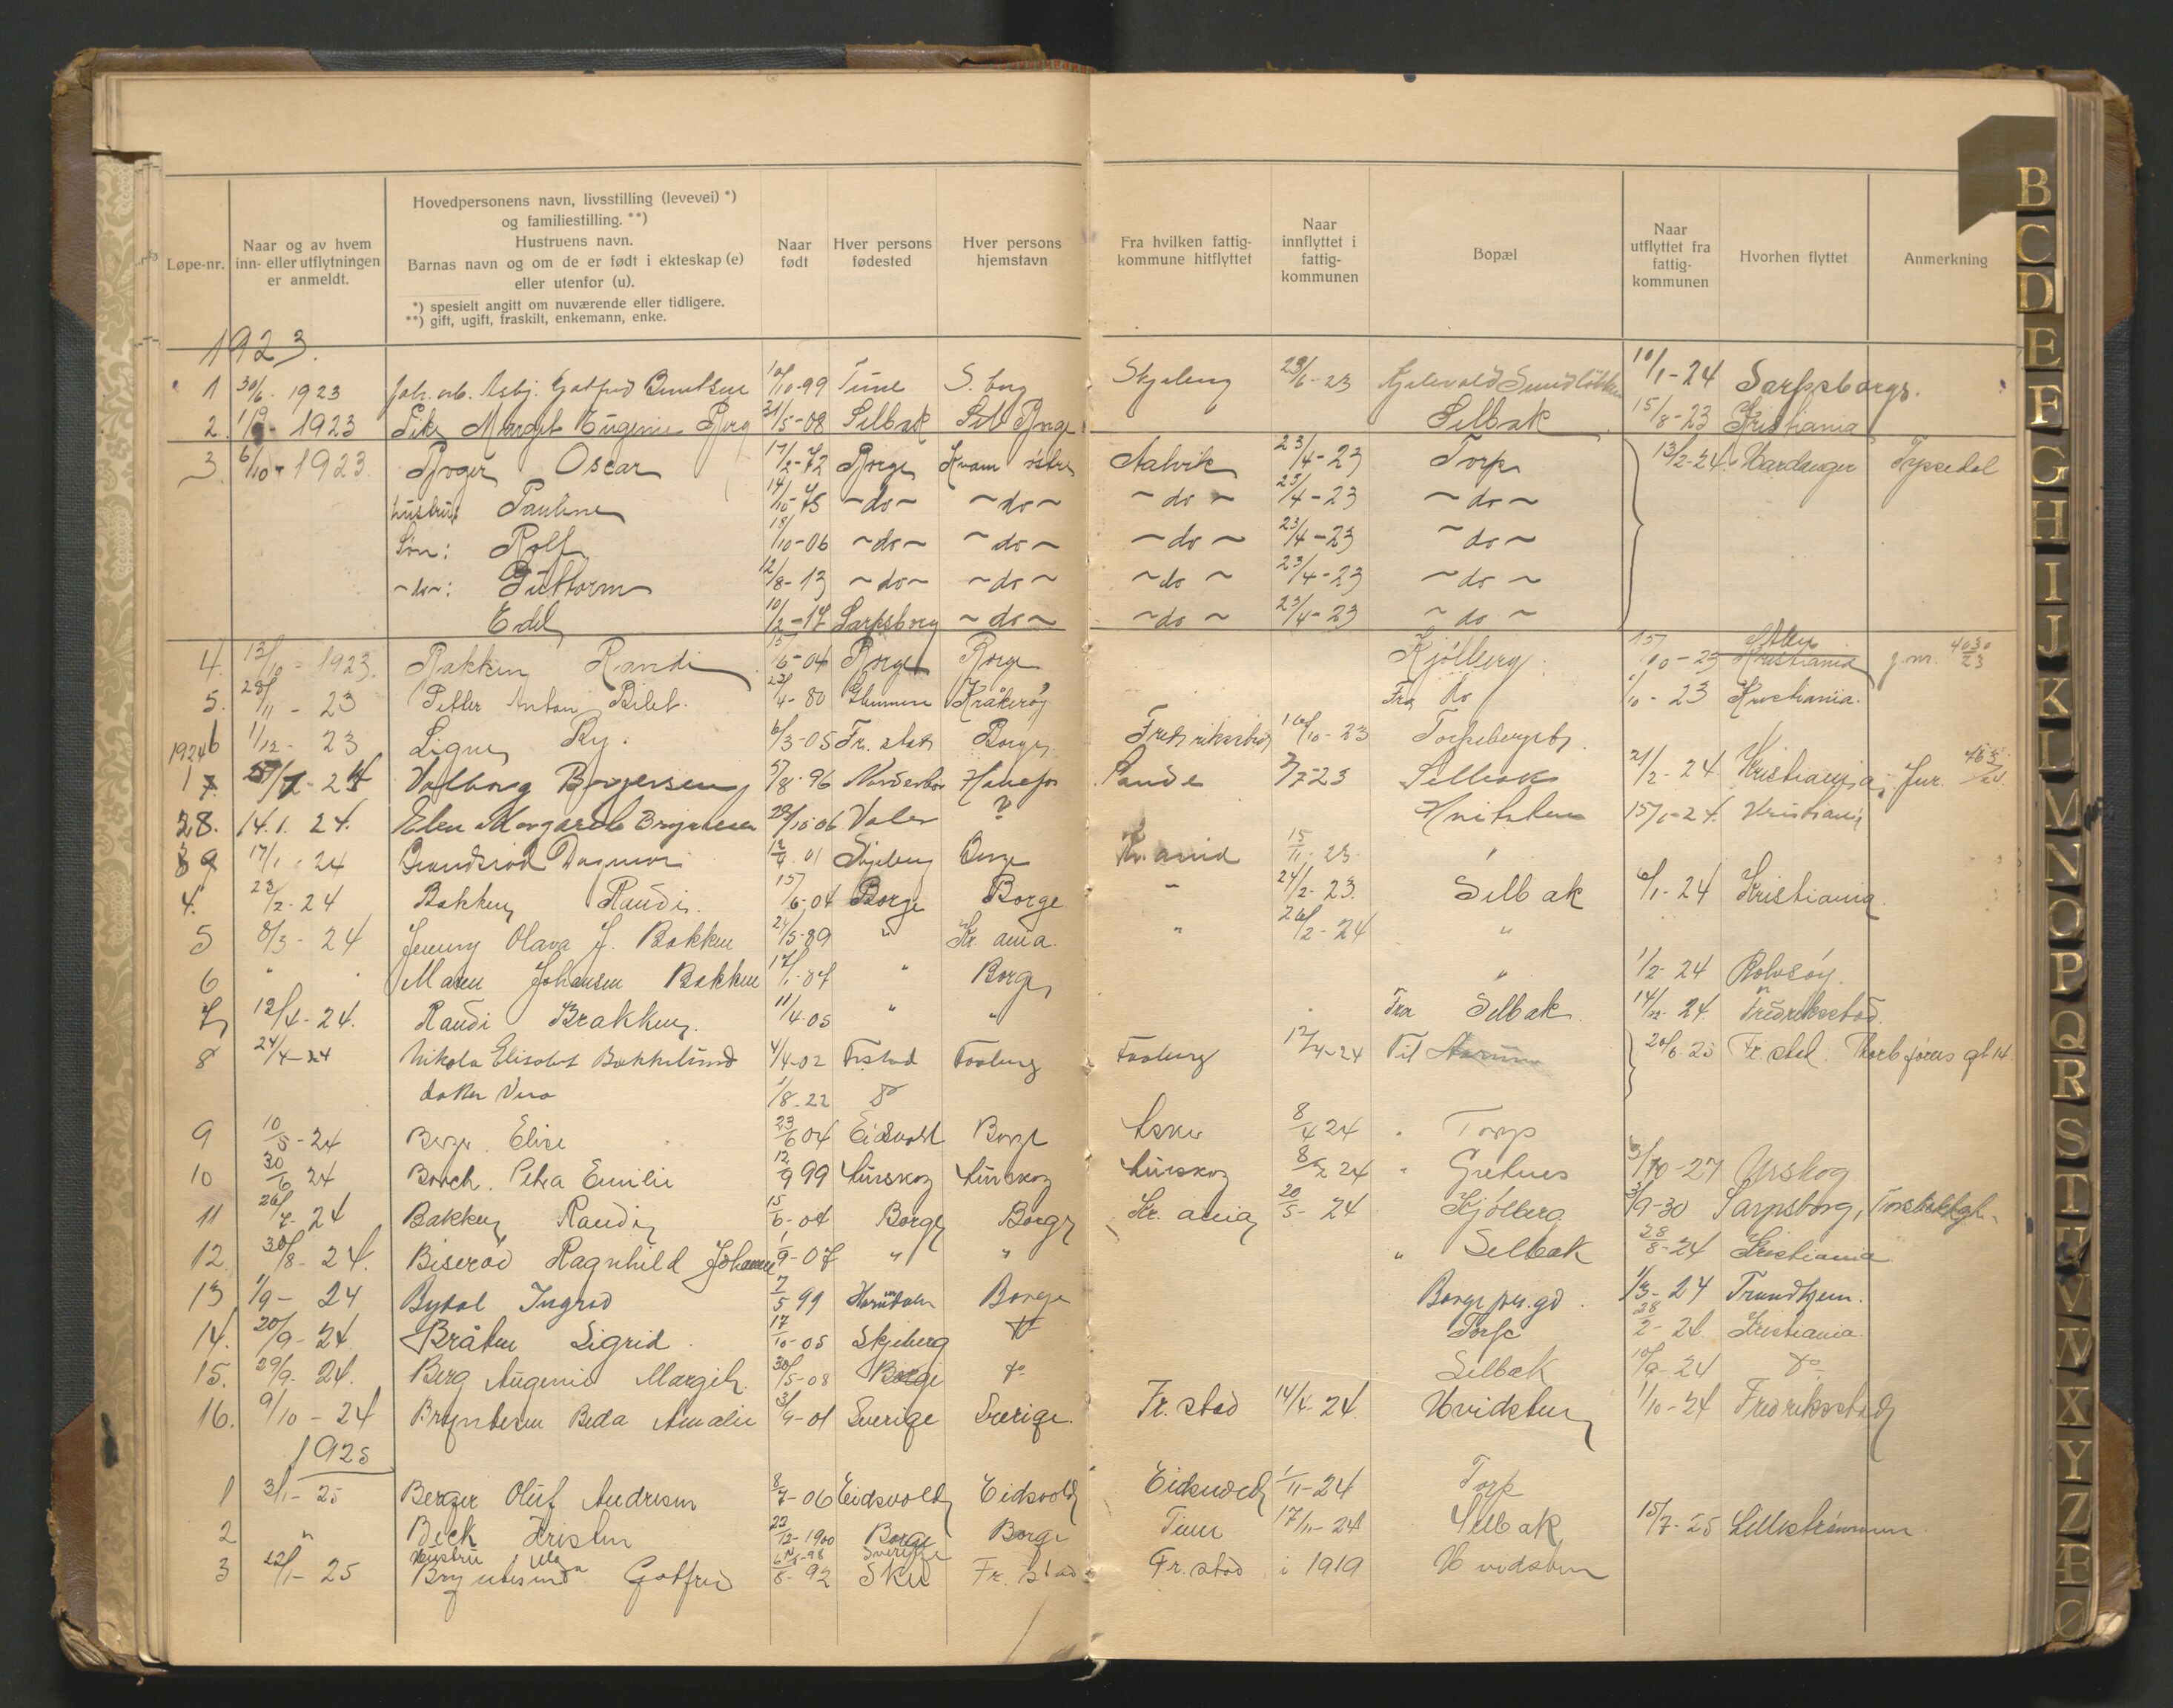 Løpe-nr. Naar og av hvem inn- eller utflytningen er anmeldt. Hovedpersonens navn, livsstilling (levevei) *) og familiestilling. **) Hustruens navn. Barnas navn og om de er født i ekteskap (e) eller utenfor (u). *) spesielt angitt om nuværende eller tidligere. **) gift, ugift, fraskilt, enkemann, enke. Naar født Hver persons fødested Hver persons hjemstavn Fra hvilken fattig-kommune hitflyttet Naar innflyttet i fattig-kommunen Bopæl Naar utflyttet fra fattig-kommunen Hvorhen flyttet Anmerkning
1923.
1 30/6. 1923 Gotfred 10/10-99 Tune S. borg Skjeberg 1/1-24 Sarpsborg.
2. 1923 Pike Margit Eugenie Berg 31/5-08 Selbak Selbak 15/8-23 Kristiania
3. 6/10 - 1923. Oscar 17/2-72 Borge Kvam Aalvik 23/4-23 Torp 13/2-24. Hardanger Tyssedal
hustru: Pauline 14/10-75 -do- -do- -do- 23/4-23 -do-
Søn: Rolf 18/10-06 -do- -do- -do- 23/4-23 -do-
-do-: Guttorm 12/8-13 -do- -do- -do- 23/4-23 -do-
Edel 10/2-17 Sarpsborg -do- -do- 23/4-23 -do-
4. 13/10 - 1923. Bakken Randi 15/6-04 Borge Borge Kjølberg. 15/10-23 Kristiania j. nr. 4030/23
5. 28/11 - 23 Petter Anton Bilet. 23/4-80 Glemmen Kråkerøy Fra do 1/10-23 Kristiania.
1924 6 1/12- 23 Signe By. 6/3-05 Fr. stad Borge Fredrikstad 16/10-23
1 7. Valborg Børjersen 5/8-96 Sande 2/7-23 Selbak 21/2-24. Kristiania, Jnr. 465/24.
2 8. 14. 1. 24. Ellen Margarete 06 Valer ? Hvitsten 15/1-24. Kristiania
3 9 17/1 24 Brandsrød Dagmar 01 Skjeberg Borge Kr. ania 15/11. 23. "
4. 23/2-24 Bakken Randi. 15/6-04 Borge Borge " 24/2-23. Selbak 6/1-24 Kristiania.
5 8/3-24 Jenny Olava J. Bakken 24/5-89 " Kr. ania. " 26/2-24 "
6 " " Maren Johansen Bakken 17/1-07 " Borge " 1/2-24 Rolvsøy.
7 12/4-24. Randi Brakken. 11/4-05 " " Fra Selbak. 14/ 24. Fredrikstad.
8 24/4-24 Nikola Elisabet Bakkelund 4/4-02 Frstad Faaberg Faaberg 12/4-24 Til 20/6-25 Fr. stad. Thorbjørns gt 14.
datter Vera 1/8-22 do
9 10/5-24 Berge. Elise 23/6 04 Eidsvold Borge Asker 8/4 24 " Torp
10 30/6 24 Petra Emilie 12/9 99 Aurskog Aurskog Aurskog 8/2 24 " Gretnes 3/10-27 Urskog
11 26/7-24 Bakken Randi 15/6-04 Borge Borge Kr. ania 20/5-24 Kjølberg 3/9-30 Sarpsborg,
12. 30/8-24. Biserød Ragnhild Johanne 1/9-07 " " " Selbak 28/8-24 Kristiania
13 1/9- 24 Bydal Ingrid 7/5 99 Borge Borge pr.gd. 24 Trondhjem.
14. 20/9-24. Bråten Sigrid. 17/10-05 Skjeberg do Torp 28/2-24 Kristiania.
15. 29/9-24. Berg Augenie Margith. 30/5-08 Borge do Selbak 10/9-24 do
16. 9/10-24 Bryntesen Beda Amalie 3/9-01 Sverige Sverige. Fr. stad 14/4-24. Hvidsten 1/10-24 Fredrikstad
1925
1 3/1-25 Berger Oluf Andresen 8/7-06 Eidsvold Eidsvold Eidsvold 1/11-24 Torp
2 " Beck Kristen 22/12-1900 Borge Borge Tune 17/11-24 Selbak 15/7-25 Lillestrømmen
3 12/1-25 Bryntesen Gotfred 92 Fr. stad Fr. stad i 1919 Hvidsten
Hustru Sverige
B
C
D
E
F
G
H
I
J
K
L
M
N
O
P
Q
R
S
T
U
V
W
X
Y
Z
Æ
Ø